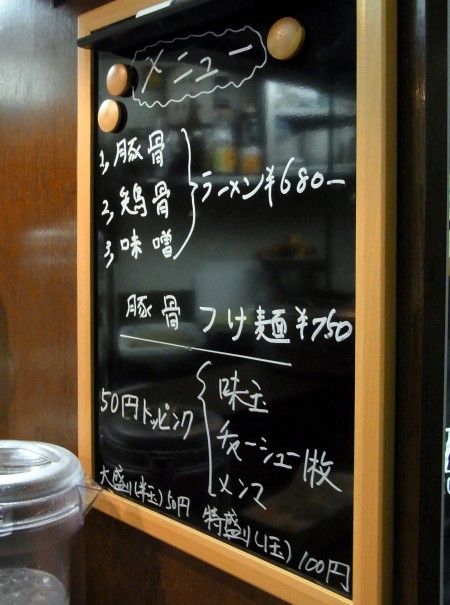 メニュー
1, 豚骨
2, 鶏骨
3, 味噌
ラーメン ¥680-
豚骨 つけ麺 ¥750
50円トッピング
味玉
チャーシュー1枚
メンマ
大盛り(半玉)50円
特盛り(1玉)100円